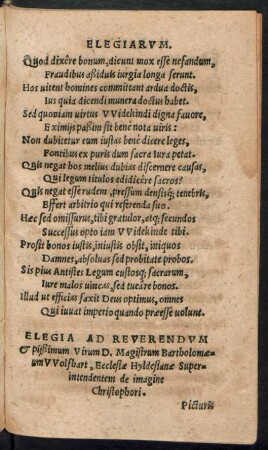 ELEGIARVM.
Quod dixêre bonum, dicunt mox esse nefandum,
Fraudibus aßiduis iurgia longa serunt.
Hos vitent homines committant ardua doctis,
Ius quia dicendi munera doctus habet.
Sed quoniam virtus VVidekindi digna fauore,
Eximijs paßim sit benè nota viris:
Non dubitetur eum iustas benè dicere leges,
Fontibus ex puris dum sacra iura petat.
Quis negat hos melius dubias discernere causas,
Qui legum titulos edidicêre sacros?
Quis negat esse rudem, pressum densisq́; tenebris,
Effert arbitrio qui referenda suo.
Hæc sed omissurus, tibi gratulor, atq; secundos
Successus opto iam VVidekinde tibi.
Prosit bonos iustis, iniustis obsit, iniquos
Damnes, absoluas sed probitate probos.
Sis pius Antistes Legum custosq; sacrarum,
Iure malos uincas, sed tueare bonos.
Illud ut efficias faxit Deus optimus, omnes
Qui iuuat imperio quando praeesse uolunt.
ELEGIA AD REVERENDVM
& pijßimum Virum D. Magistrum Bartholomæ-
um VVolfhart, Ecclesiæ Hyldesianæ Super-
intendentem de imagine
Christophori.
Picturis